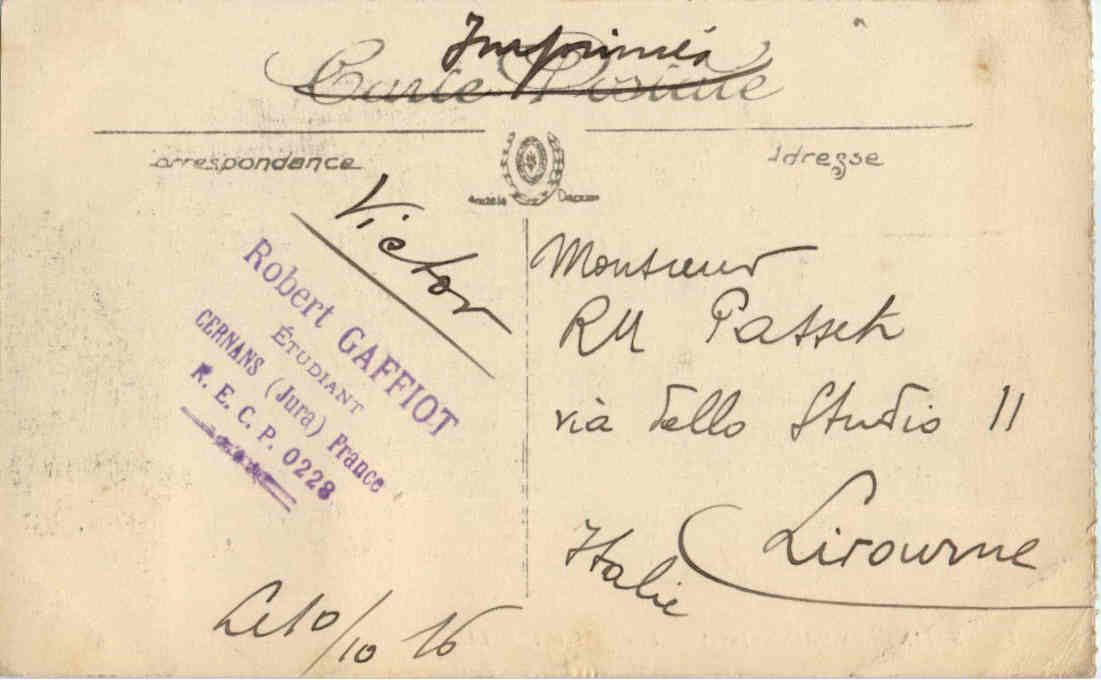 Imprimés
Carte Postale
Correspondance
Adresse
Victor
Robert GAFFIOT
ÉTUDIANT
CERNANS (Jura) France
R. E. C. P. 0228
Monsieur
RM
via dello Studio 11
Livourne
Italie
Le 10/10 16